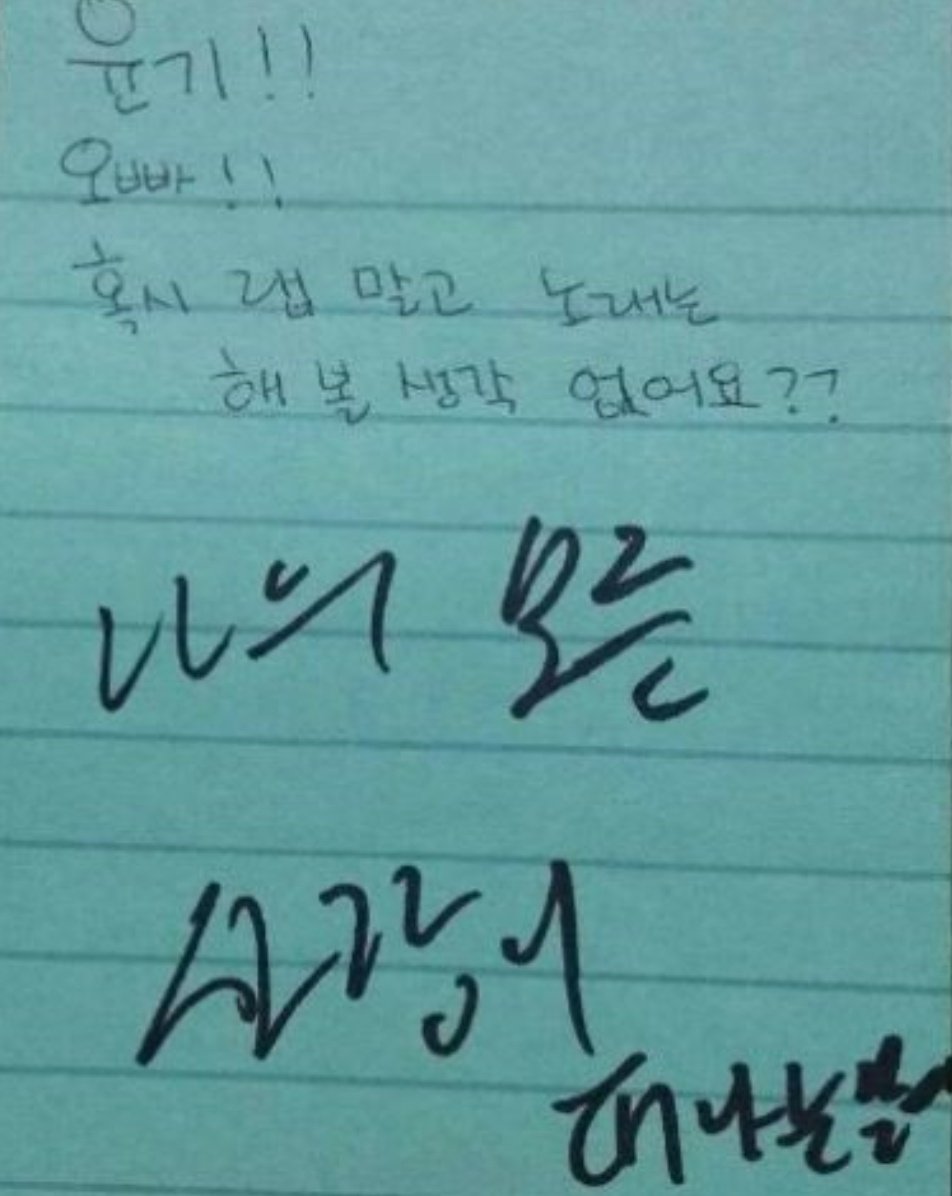 윤기!!
오빠!!
혹시 랩 말고 노래는
해 볼 생각 없어요??
나의 모든
사랑이
떠나는 날이